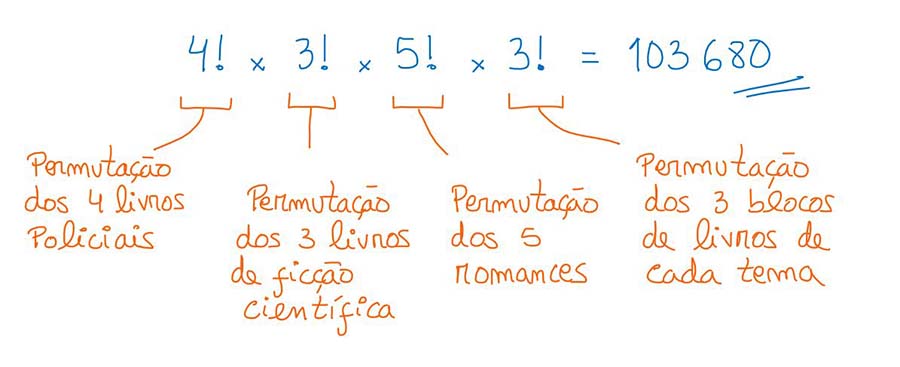 4! × 3! × 5! × 3! = 103 680
Permutação
dos 4 livros
Policiais
Permutação
dos 3 livros
de ficção
científica
Permutação
dos 5
romances
Permutação
dos 3 blocos
de livros de
cada tema